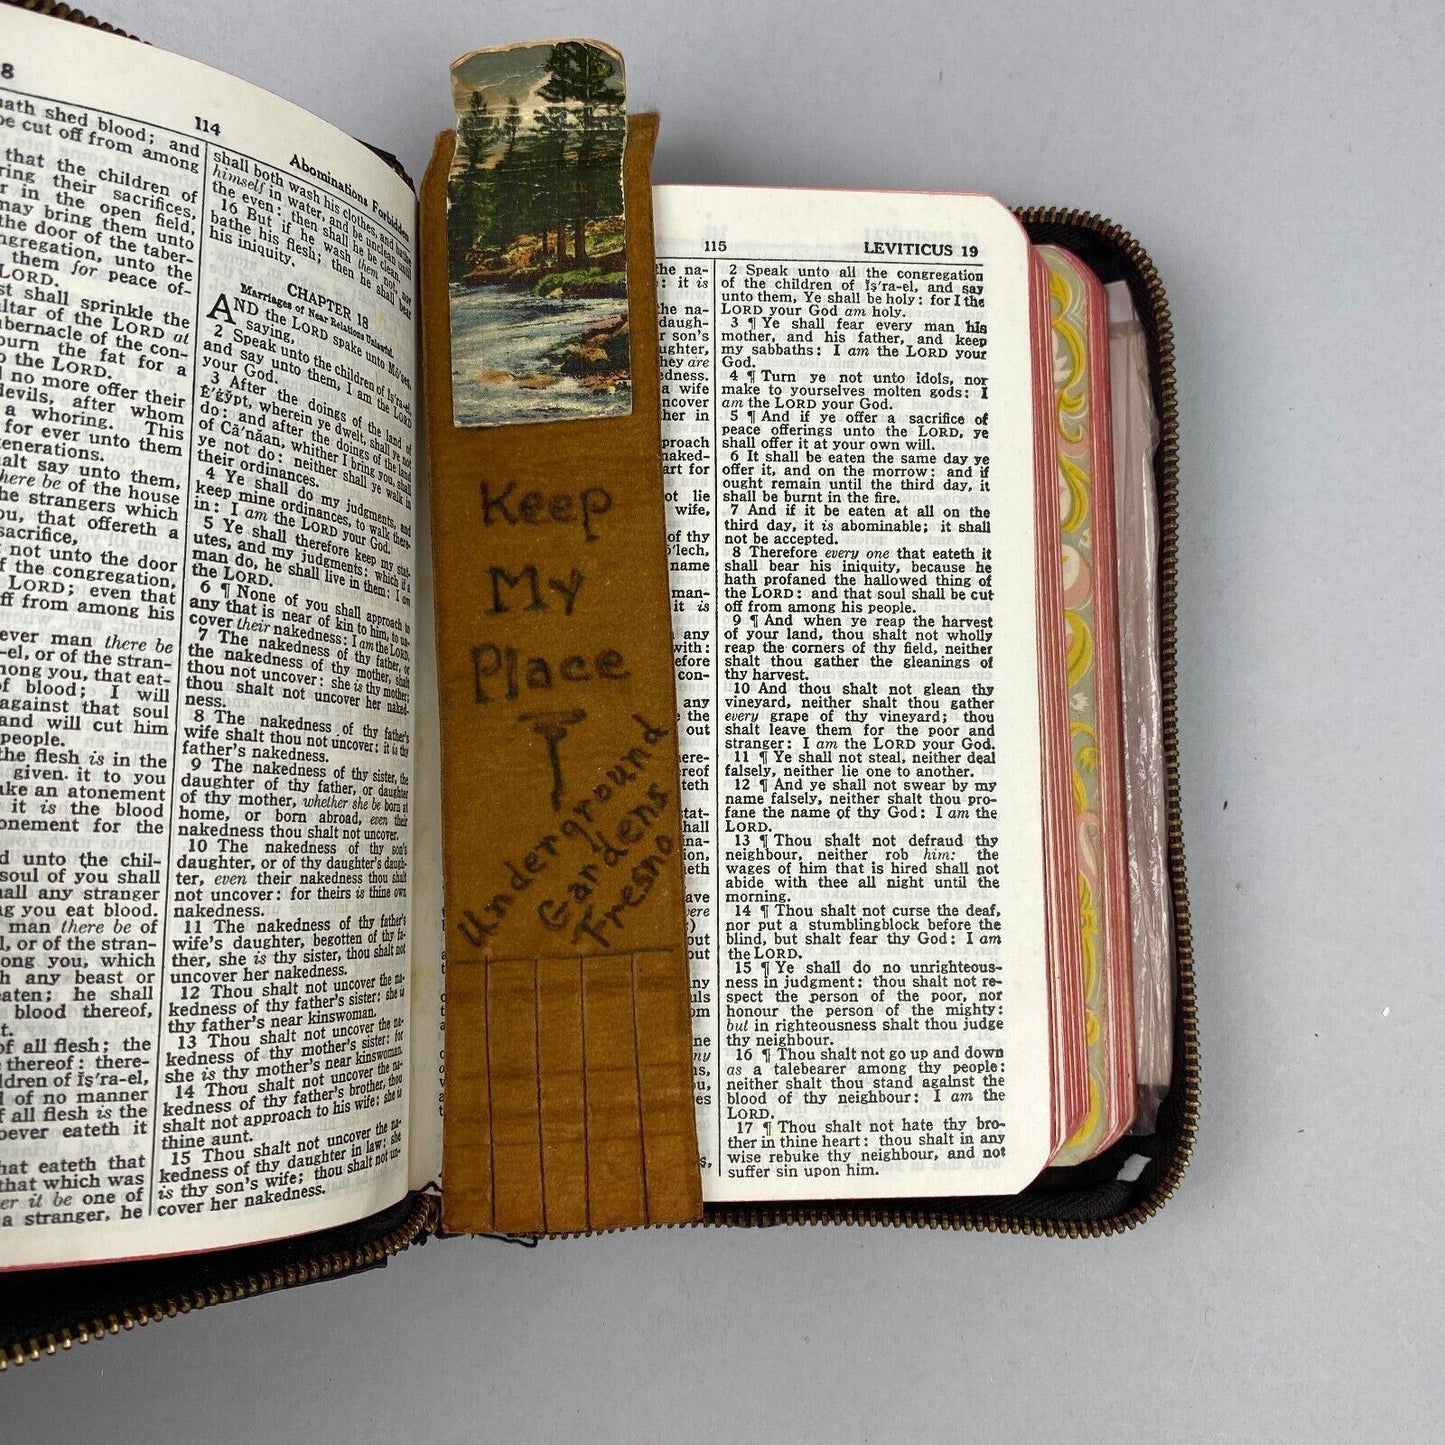 8
114
Abominations Forbidden
hath shed blood; and
be cut off from among
that the children of
their sacrifices,
in the open field,
may bring them unto
the door of the taber-
unto the
them for peace of-
LORD.
shall sprinkle the
of the LORD at
of the con-
burn the fat for a
the LORD.
no more offer their
devils, after whom
a whoring. This
for ever unto them
generations.
say unto them,
there be of the house
the strangers which
you, that offereth a
sacrifice,
not unto the door
of the congregation,
LORD; even that
off from among his
man there be
or of the stran-
among you, that eat-
of blood; I will
against that soul
and will cut him
people.
the flesh is in the
given it to you
make an atonement
it is the blood
atonement for the
unto the chil-
soul of you shall
shall any stranger
you eat blood.
man there be of
or of the stran-
among you, which
any beast or
eaten; he shall
blood thereof,
of all flesh; the
thereof: there-
children of Iş'ra-el,
of no manner
all flesh is the
eateth it
that eateth that
that which was
or it be one of
a stranger, he
shall both wash his clothes, and bathe
himself in water, and be unclean until
the even: then shall he be clean.
16 But if he wash them not, nor
bathe his flesh; then he shall bear
his iniquity.
CHAPTER 18
Marriages of Near Relations Unlawful.
AND the LORD spake unto Mō'şeş,
saying,
2 Speak unto the children of Iş'ra-el,
and say unto them, I am the LORD
your God.
3 After the doings of the land of
Ē'ġypt, wherein ye dwelt, shall ye not
do: and after the doings of the land
of Cā'năan, whither I bring you, shall
ye not do: neither shall ye walk in
their ordinances.
4 Ye shall do my judgments, and
keep mine ordinances, to walk there-
in: I am the LORD your God.
5 Ye shall therefore keep my stat-
utes, and my judgments: which if a
man do, he shall live in them: I am
the LORD.
6 ¶ None of you shall approach to
any that is near of kin to him, to un-
cover their nakedness: I am the LORD.
7 The nakedness of thy father, or
the nakedness of thy mother, shalt
thou not uncover: she is thy mother;
thou shalt not uncover her naked-
ness.
8 The nakedness of thy father's
wife shalt thou not uncover: it is thy
father's nakedness.
9 The nakedness of thy sister, the
daughter of thy father, or daughter
of thy mother, whether she be born at
home, or born abroad, even their
nakedness thou shalt not uncover.
10 The nakedness of thy son's
daughter, or of thy daughter's daugh-
ter, even their nakedness thou shalt
not uncover: for theirs is thine own
nakedness.
11 The nakedness of thy father's
wife's daughter, begotten of thy fa-
ther, she is thy sister, thou shalt not
uncover her nakedness.
12 Thou shalt not uncover the na-
kedness of thy father's sister: she is
thy father's near kinswoman.
13 Thou shalt not uncover the na-
kedness of thy mother's sister: for
she is thy mother's near kinswoman.
14 Thou shalt not uncover the na-
kedness of thy father's brother, thou
shalt not approach to his wife: she is
thine aunt.
15 Thou shalt not uncover the na-
kedness of thy daughter in law: she
is thy son's wife; thou shalt not un-
cover her nakedness.
Keep
My
Place
Underground
Gardens
Fresno
115
LEVITICUS 19
the na-
: it is
the na-
daugh-
son's
they are
a wife
uncover
in
lie
wife,
of thy
name
man-
it is
any
with:
con-
any
the
out
shall
but
any
2 Speak unto all the congregation
of the children of Iş'ra-el, and say
unto them, Ye shall be holy: for I the
LORD your God am holy.
3 ¶ Ye shall fear every man his
mother, and his father, and keep
my sabbaths: I am the LORD your
God.
4 ¶ Turn ye not unto idols, nor
make to yourselves molten gods: I
am the LORD your God.
5 ¶ And if ye offer a sacrifice of
peace offerings unto the LORD, ye
shall offer it at your own will.
6 It shall be eaten the same day ye
offer it, and on the morrow: and if
ought remain until the third day, it
shall be burnt in the fire.
7 And if it be eaten at all on the
third day, it is abominable; it shall
not be accepted.
8 Therefore every one that eateth it
shall bear his iniquity, because he
hath profaned the hallowed thing of
the LORD: and that soul shall be cut
off from among his people.
9 ¶ And when ye reap the harvest
of your land, thou shalt not wholly
reap the corners of thy field, neither
shalt thou gather the gleanings of
thy harvest.
10 And thou shalt not glean thy
vineyard, neither shalt thou gather
every grape of thy vineyard; thou
shalt leave them for the poor and
stranger: I am the LORD your God.
11 ¶ Ye shall not steal, neither deal
falsely, neither lie one to another.
12 ¶ And ye shall not swear by my
name falsely, neither shalt thou pro-
fane the name of thy God: I am the
LORD.
13 ¶ Thou shalt not defraud thy
neighbour, neither rob him: the
wages of him that is hired shall not
abide with thee all night until the
morning.
14 ¶ Thou shalt not curse the deaf,
nor put a stumblingblock before the
blind, but shalt fear thy God: I am
the LORD.
15 ¶ Ye shall do no unrighteous-
ness in judgment: thou shalt not re-
spect the person of the poor, nor
honour the person of the mighty:
but in righteousness shalt thou judge
thy neighbour.
16 ¶ Thou shalt not go up and down
as a talebearer among thy people:
neither shalt thou stand against the
blood of thy neighbour: I am the
LORD.
17 ¶ Thou shalt not hate thy bro-
ther in thine heart: thou shalt in any
wise rebuke thy neighbour, and not
suffer sin upon him.